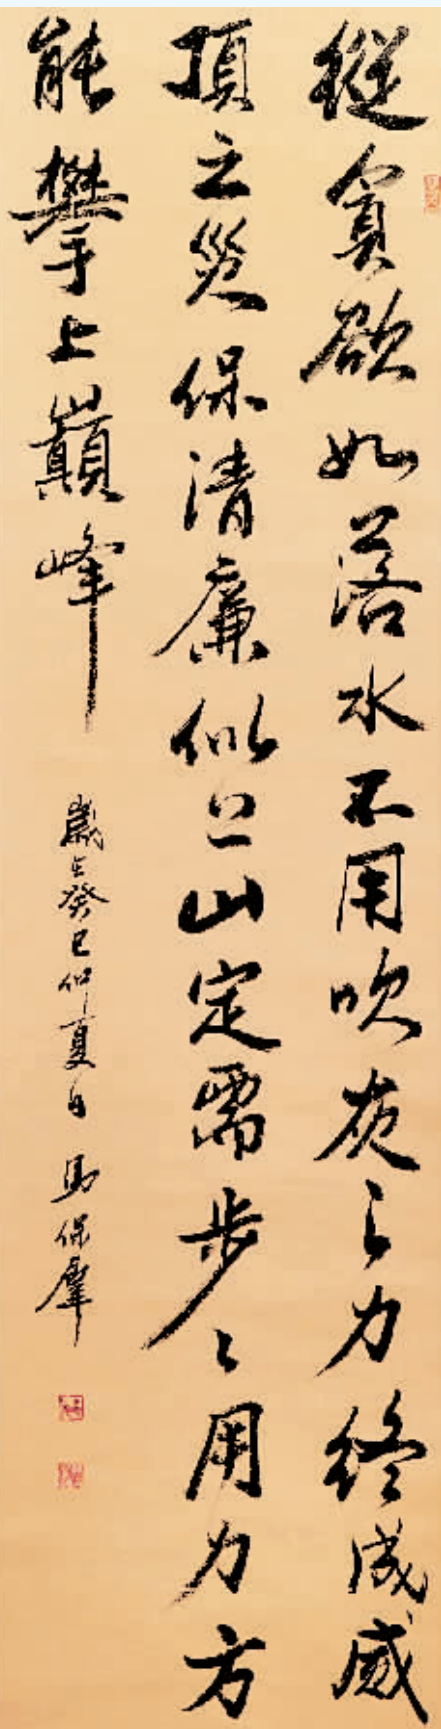 縱貪欲如落水不用吹灰之力終成烕
頂之災保清廉似上山定需步〻用力方
能攀上巔峰
歲在癸巳仲夏日 馬保羣